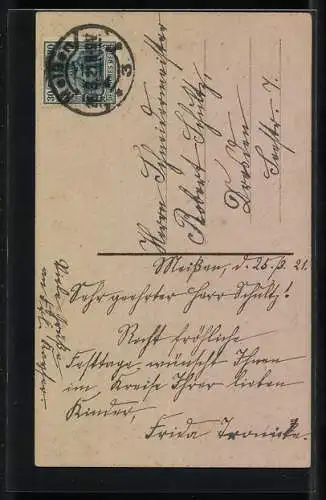 Meißen
3
30
Herrn Schneidermeister
Robert Schultz,
Dresden
Seestr. 7.
Meißen, d. 25.3. 21.
Sehr geehrter Herr Schultz!
Recht fröhliche
Festtage wünscht Ihnen
im Kreise Ihrer lieben
Kinder,
Frida Tronicke.
Viele Grüße
an Frl.